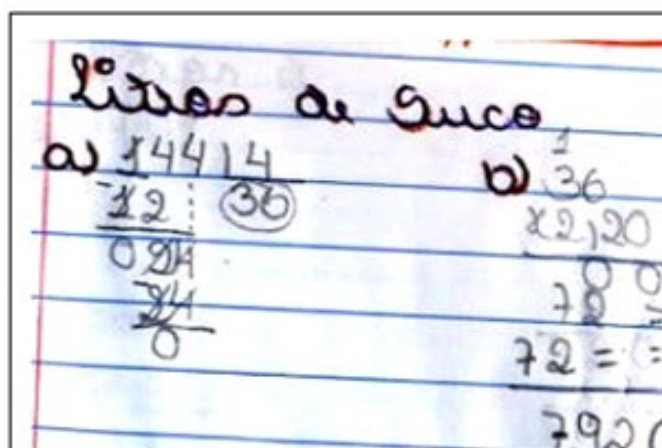 Litros de Suco
a) 144 | 4
-12 36
024
-24
0
b) 1
36
x2,20
00
72
72